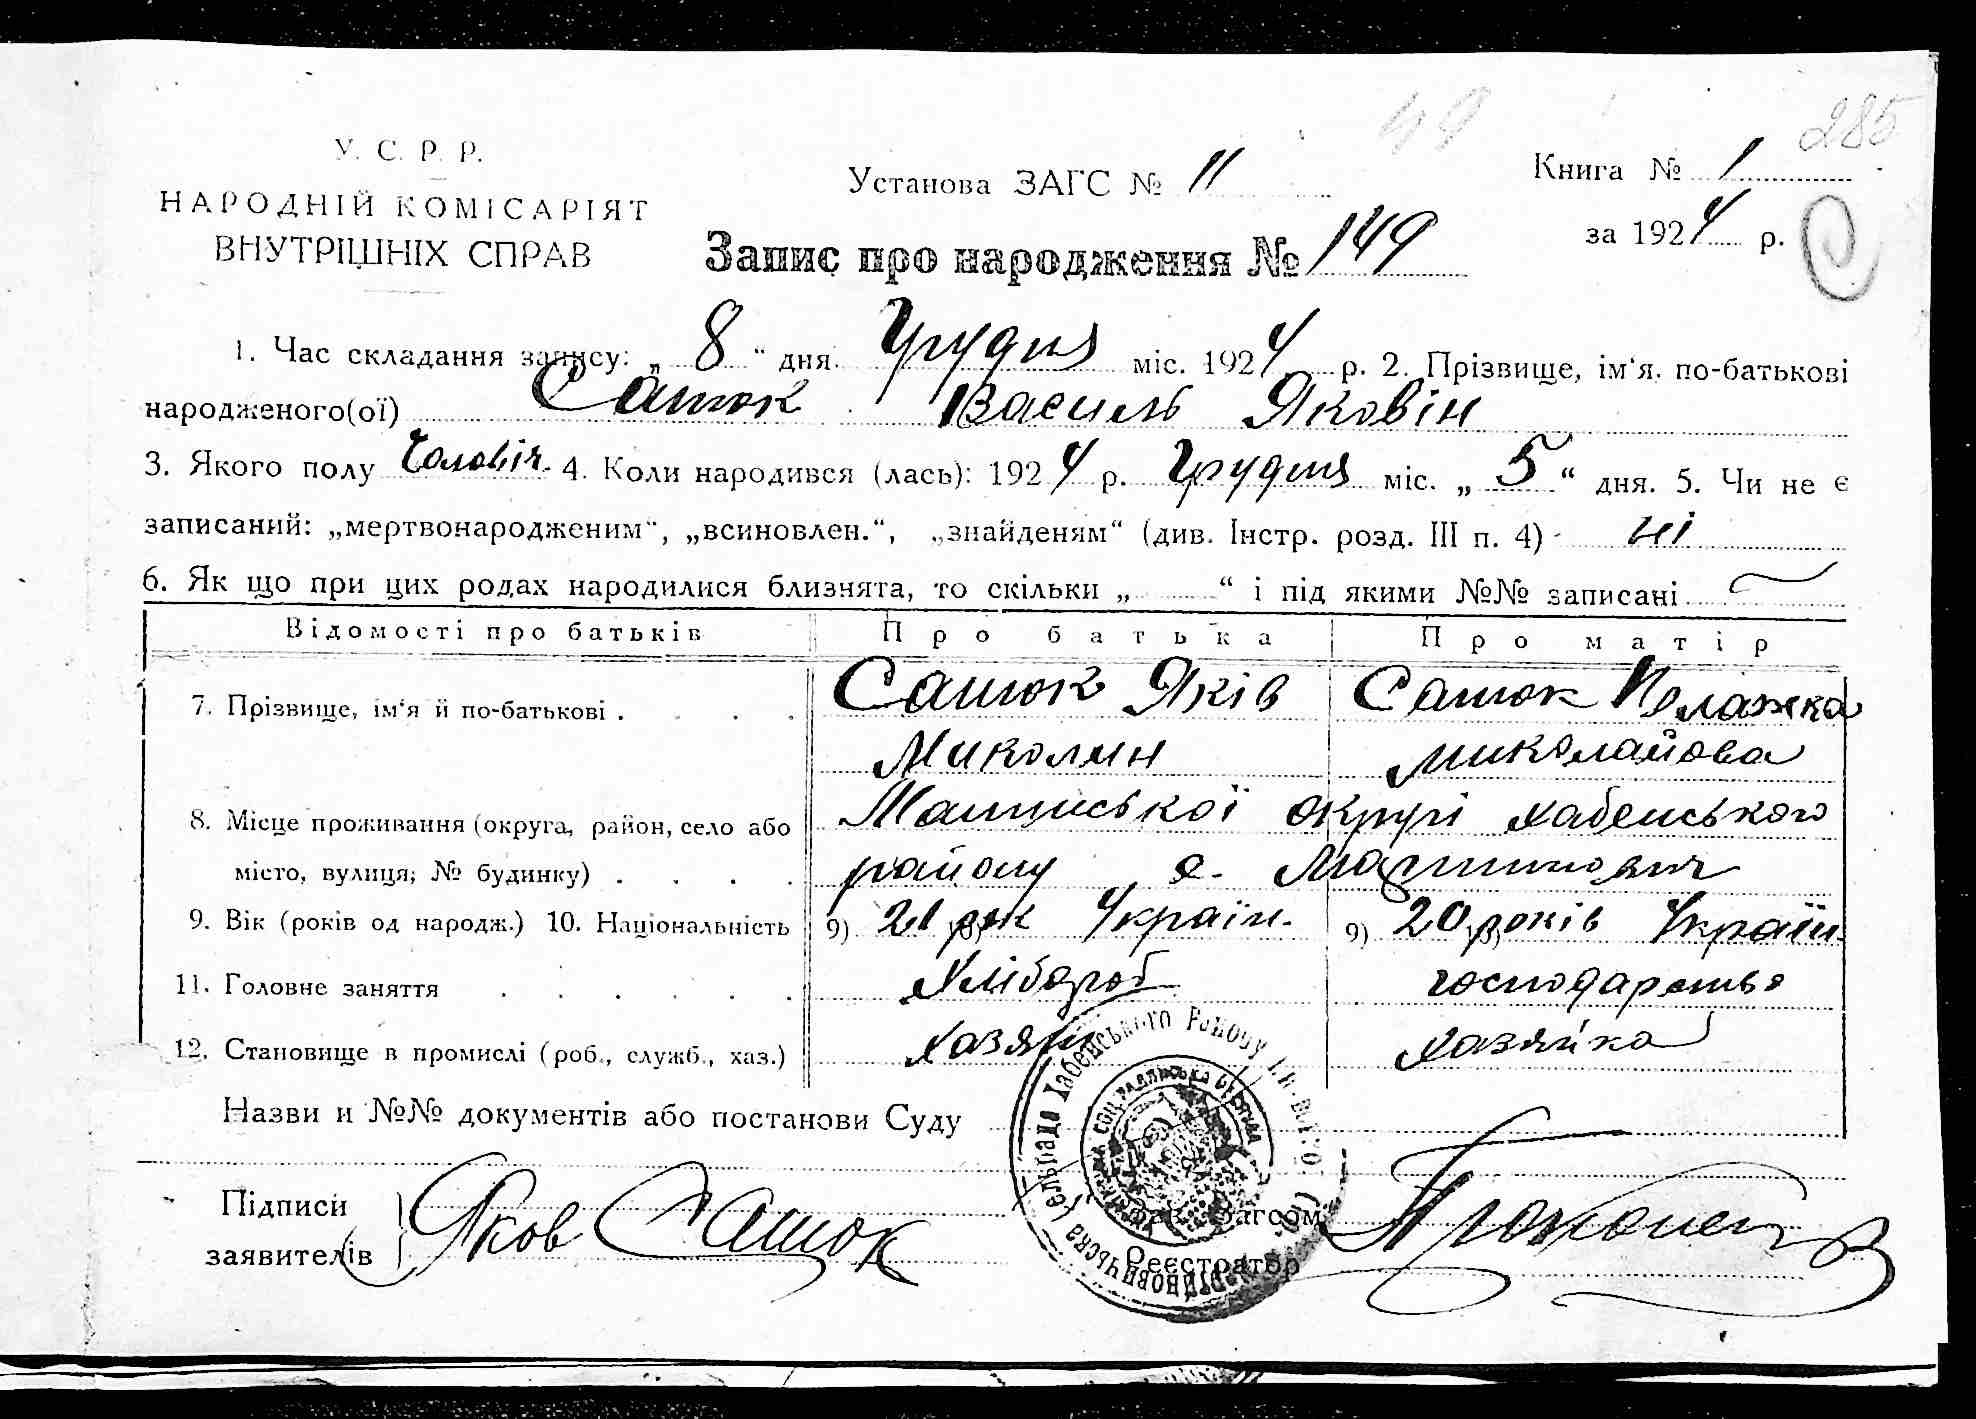 49
285
У. С. Р. Р.
НАРОДНІЙ КОМІСАРІЯТ
ВНУТРІШНІХ СПРАВ
Установа ЗАГС № 11
Книга № 1
за 1924 р.
Запис про народження № 149
1. Час складання запису: „ 8 “ дня. Грудня міс. 1924 р. 2. Прізвище, ім'я, по-батькові
народженого(ої) Сашок Василь Яковін
3. Якого полу Чоловіч. 4. Коли народився (лась): 1924 р. Грудня міс. „ 5 “ дня. 5. Чи не є
записаний: „мертвонародженим“, „всиновлен.“, „знайденям“ (див. Інстр. розд. III п. 4) ні
6. Як що при цих родах народилися близнята, то скільки „ “ і під якими №№ записані
Відомості про батьків Про батька Про матір
7. Прізвище, ім'я й по-батькові . . . . Сашок Яків Сашок Полажка
Миколин Миколайова
8. Місце проживання (округа, район, село або Малинської округі Хабенського
місто, вулиця; № будинку) . . . . району с. Мартинович
9. Вік (років од народж.) 10. Національність 9) 21 рок Україн. 9) 20 років Україн.
11. Головне заняття . . . . . . Хлібороб господарство
12. Становище в промислі (роб., служб., хаз.) хазяін хазяйка
Назви й №№ документів або постанови Суду
Підписи
заявителів Яков Сашок
Зав. Загсом
Реєстратор
Хабенського Району